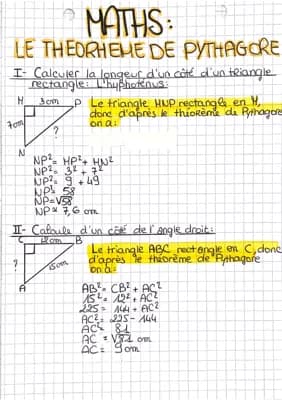 MATHS:
LE THEORHEME DE PYTHAGORE
I- Calculer la longeur d'un côté d'un triangle
rectangle: L'hyphoténus:
H 3cm P
7cm ?
N
Le triangle HNP rectangle en H,
donc d'après le théorème de Pythagore
on a:
NP²= HP²+ HN²
NP²= 3²+ 7²
NP²= 9 + 49
NP²= 58
NP=√58
NP≈ 7,6 cm
II- Calcule d'un côté de l'angle droit:
C 12cm B
? 15cm
A
Le triangle ABC rectangle en C, donc
d'après le théorème de Pythagore
on a:
AB²= CB²+ AC²
15²= 12²+ AC²
225= 144 + AC²
AC²= 225 - 144
AC²= 81
AC = √81 cm
AC= 9cm